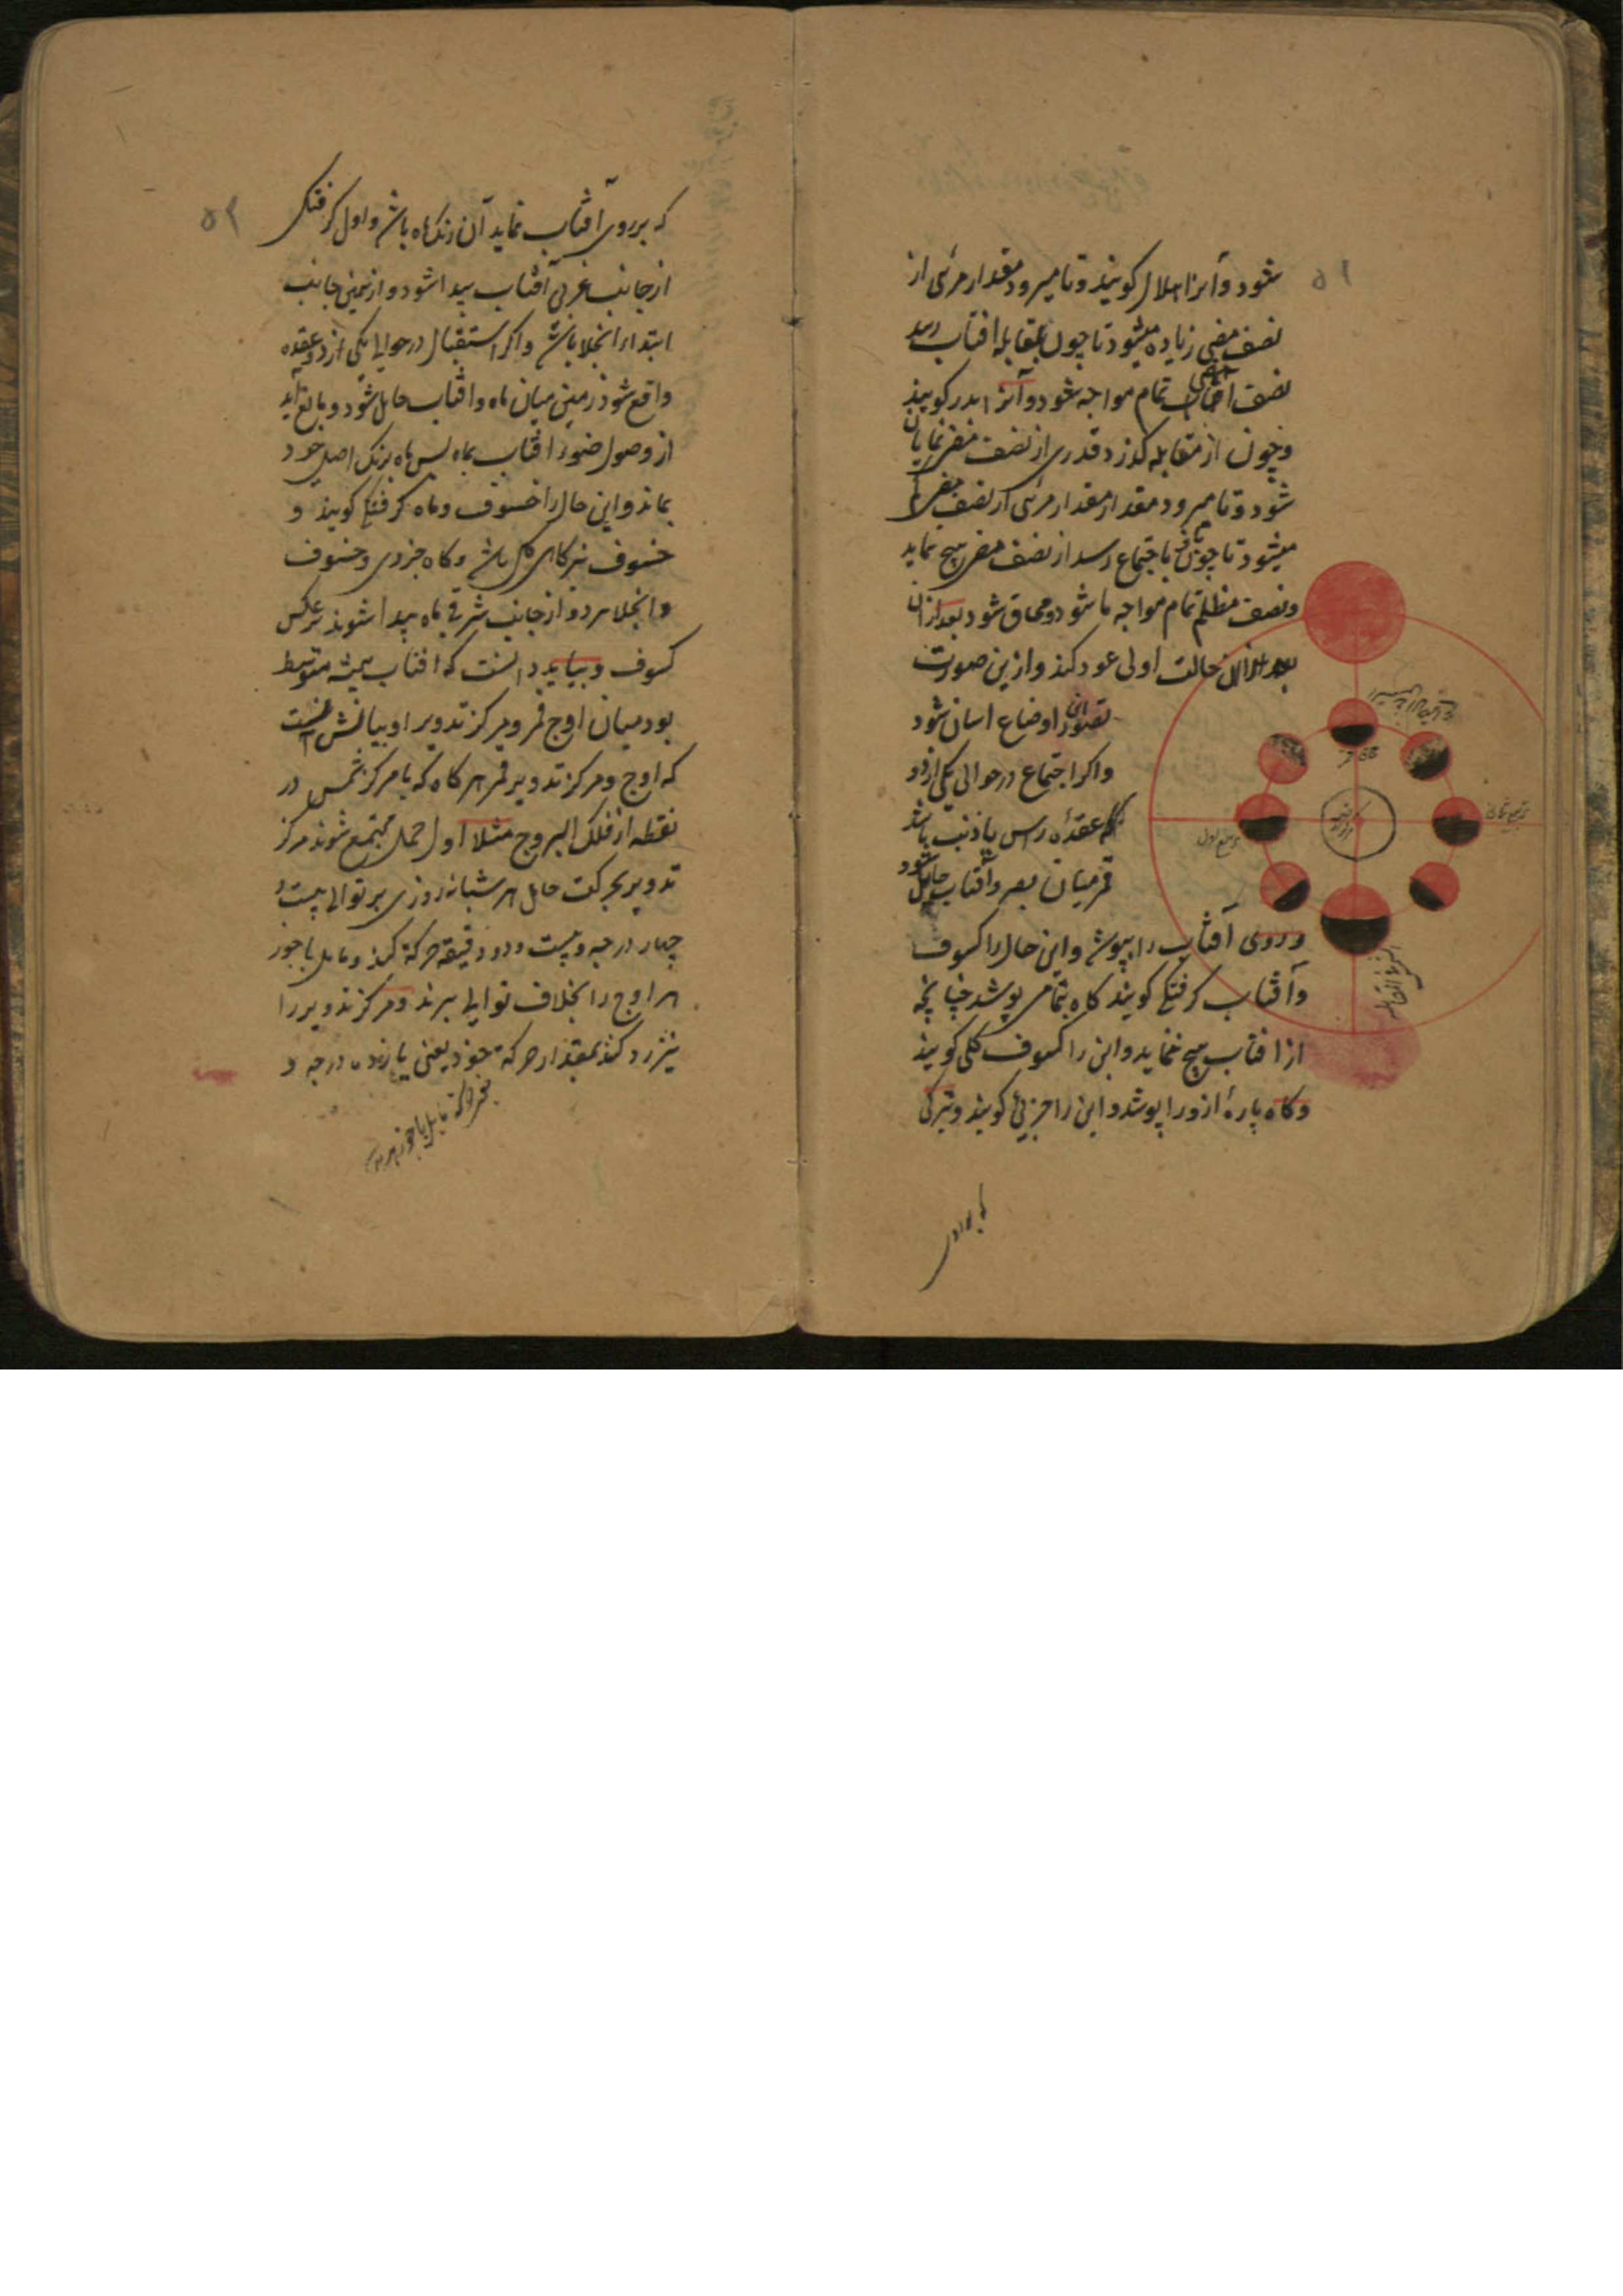 ۵۱
شود و آنرا هلال کویند و تا میرود مقدار مرئی از
نصف مضی زیاده میشود تا چون بمقابله افتاب رسد
نصف تمام مواجه شود و آنرا بدر کویند
و چون از مقابله کذرد قدری از نصف نمایان
شود و تا میرود مقدار مقدار مرئی از نصف مضی
میشود تا چون باجتماع رسد از نصف مضی هیچ نماید
و نصف مظلم تمام مواجه ما شود و محاق شود بعد ازان
حالت اولی عود کند و ازین صورت
تصور اوضاع اسان شود
و اکر اجتماع در حوالی یکی از دو
عقدهٔ راس یا ذنب باشد
قمر میان بصر و آفتاب حایل شود
و روی آفتاب را بپوشد و این حال را کسوف
و آفتاب کرفتکی کویند کاه بتمامی پوشد چنانچه
از افتاب هیچ ننماید و این را کسوف کلی کویند
و کاه پارهٔ ازو را پوشد و این را جزئی کویند و تیرکی
تربیع ثانی
تربیع اول
۵۲
که بر روی آفتاب نماید آن رنک ماه باشد و اول کرفتکی
از جانب غربی آفتاب پیدا شود و از همین جانب
ابتداء انجلا باشد و اکر استقبال در حوالی یکی از دو عقده
واقع شود زمین میان ماه و افتاب حایل شود و مانع آید
از وصول ضوء افتاب بماه پس ماه برنک اصلی خود
بماند و این حال را خسوف و ماه کرفتکی کویند و
خسوف نیز کاهی کلی باشد و کاه جزوی و خسوف
و انجلا هر دو از جانب شرقی ماه پیدا شوند بر عکس
کسوف و بباید دانست که افتاب همیشه متوسط
بود میان اوج قمر و مرکز تدویر او و بیانش آنست
که اوج و مرکز تدویر قمر هر کاه که با مرکز شمس در
نقطه از فلک البروج مثلا اول حمل مجتمع شوند مرکز
تدویر بحرکت حامل هر شبانه روزی بر توالی بیست و
چهار درجه و بیست و دو دقیقه حرکة کند و مایل با جوز
هر اوج را بخلاف توالی برند و مرکز تدویر را
نیز رد کند بمقدار حرکة خود یعنی یازده درجه و